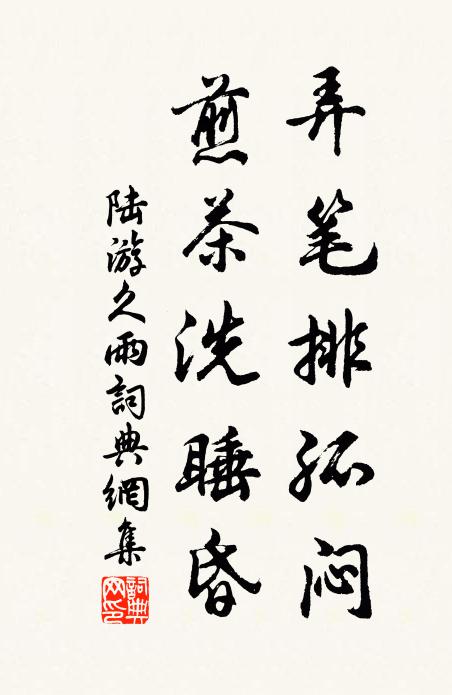 弄笔排孤闷
煎茶洗睡昏
陆游久雨詞典網集
詞典
网印